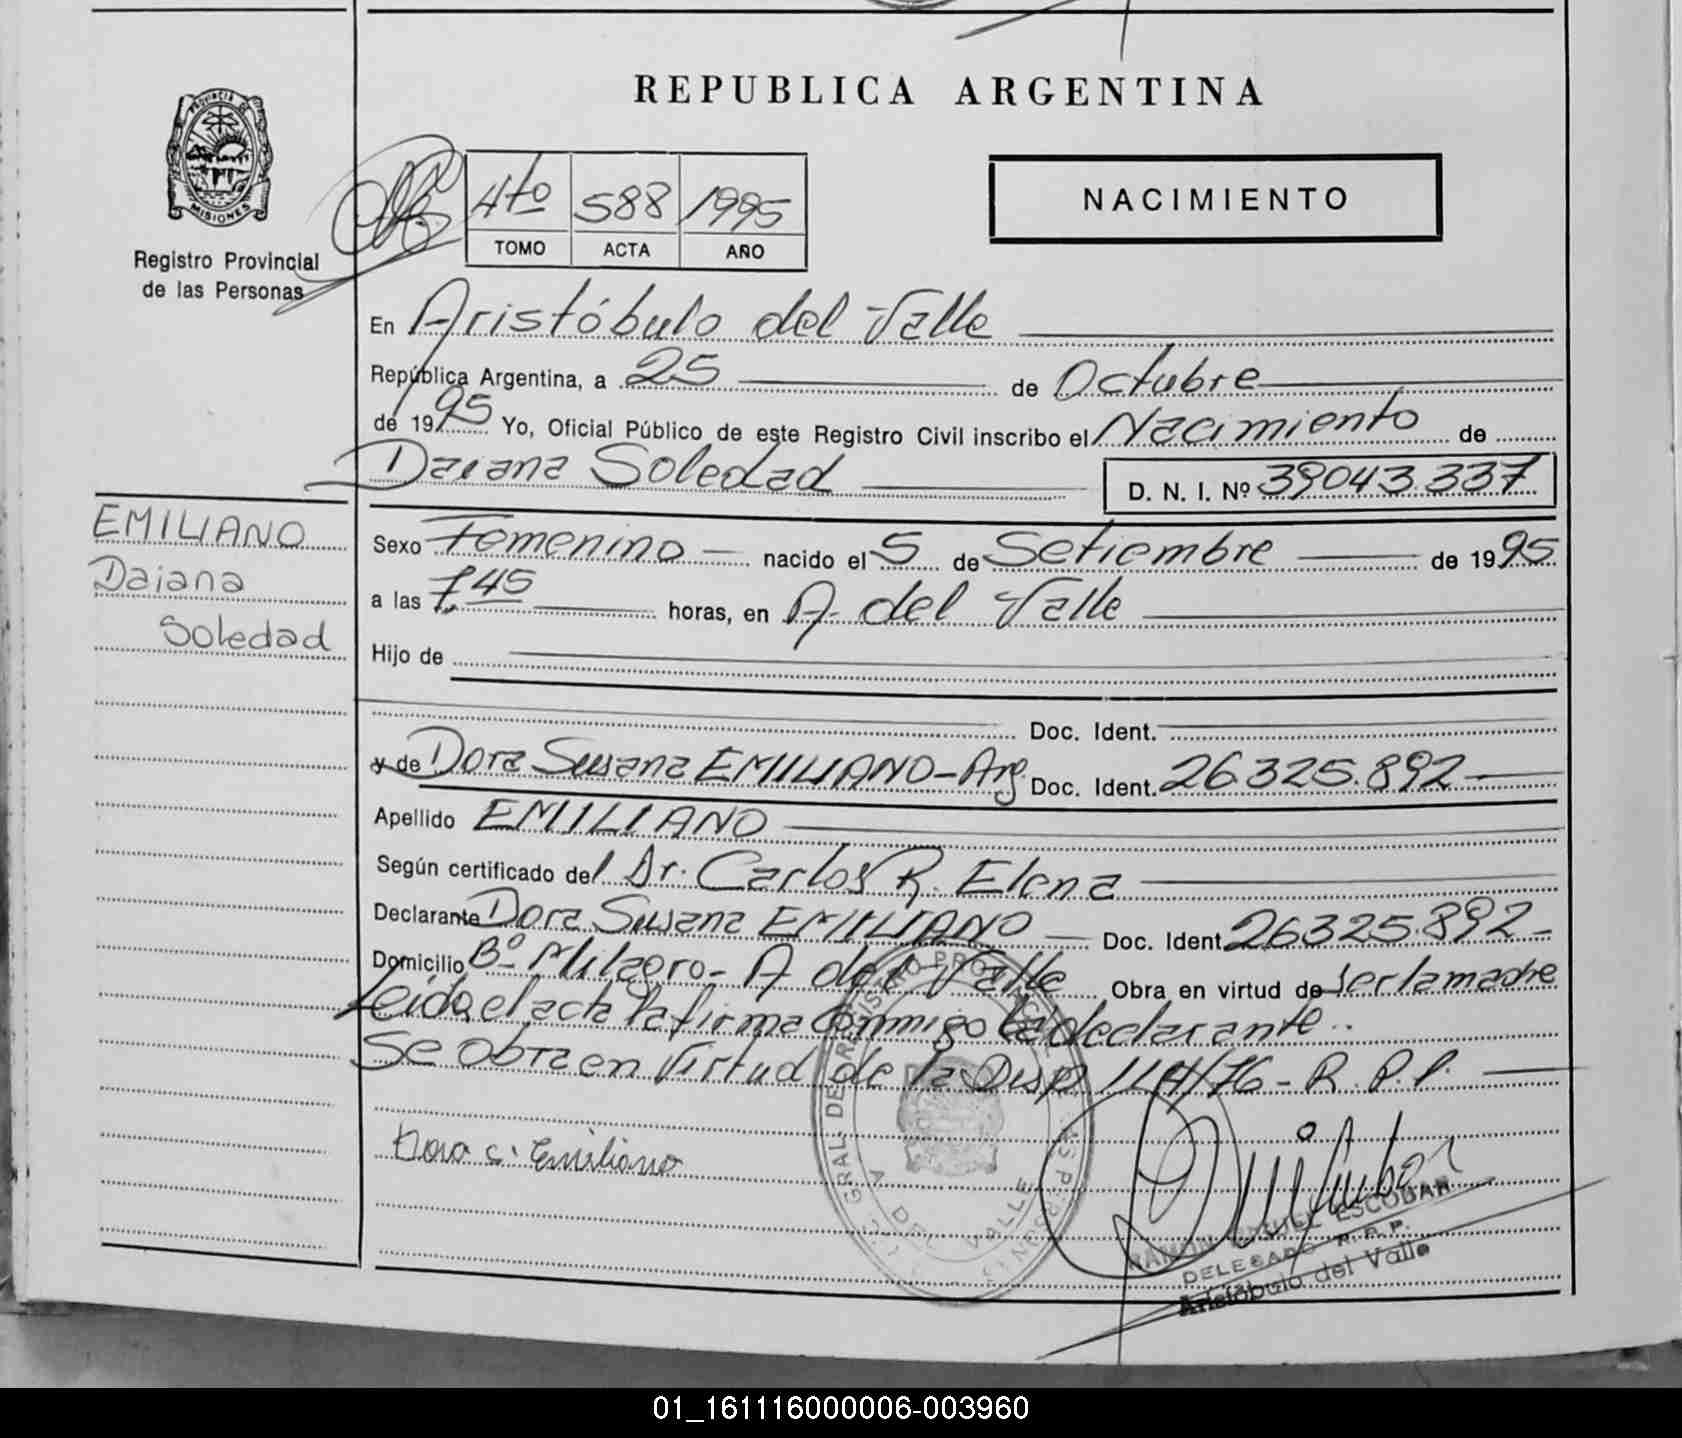 REPUBLICA ARGENTINA
PROVINCIA DE
MISIONES
Registro Provincial
de las Personas
4to 588 1995
TOMO ACTA AÑO
NACIMIENTO
En Aristóbulo del Valle
República Argentina, a 25 de Octubre
de 1995 Yo, Oficial Público de este Registro Civil inscribo el Nacimiento de
Daiana Soledad D. N. I. Nº 39043.337
EMILIANO
Daiana
Soledad
Sexo Femenino nacido el 5 de Setiembre de 1995
a las 7,45 horas, en A. del Valle
Hijo de
Doc. Ident.
y de Dora Susana EMILIANO-Arg. Doc. Ident. 26325.892
Apellido EMILIANO
Según certificado del Dr. Carlos R. Elena
Declarante Dora Susana EMILIANO Doc. Ident. 26325.892
Domicilio Bº Milagro- A del Valle Obra en virtud de ser la madre
Leida el acta la firma conmigo la declarante..
Se obra en virtud de la Disp 114/76- R. P. P.
Dora S. Emiliano
RAMON MIGUEL ESCOBAR
DELEGADO R.P.P.
Aristóbulo del Valle
01_161116000006-003960